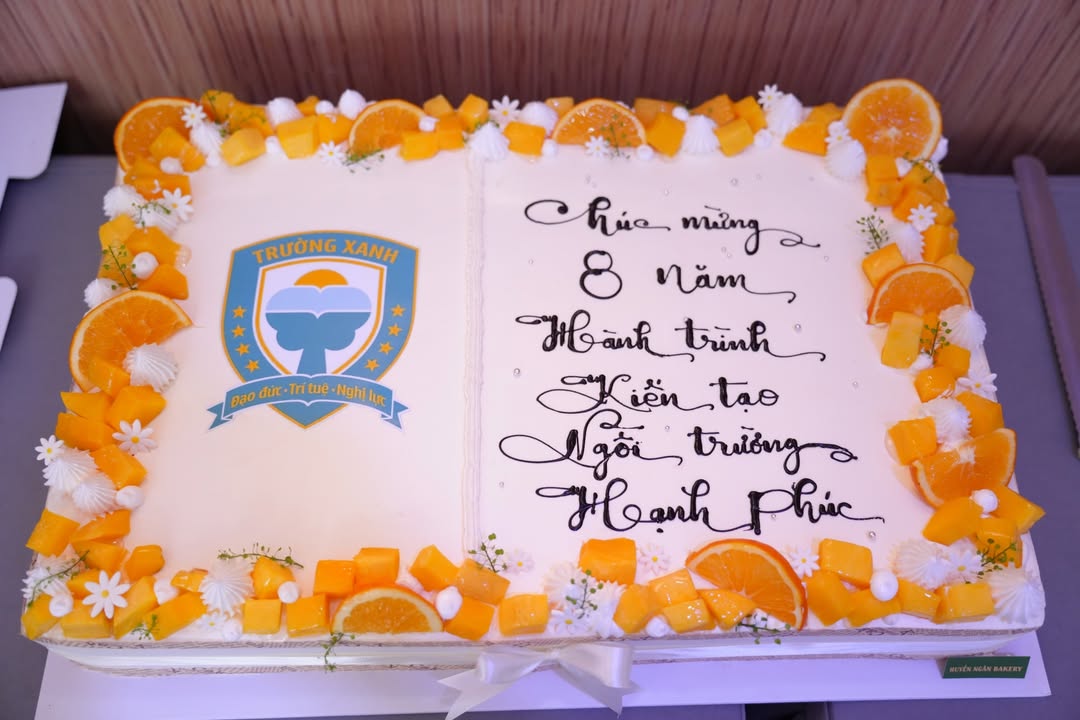 TRƯỜNG XANH
Đạo đức · Trí tuệ · Nghị lực
Chúc mừng
8 năm
Hành trình
Kiến tạo
Ngôi trường
Hạnh Phúc
HUYỀN NGÂN BAKERY